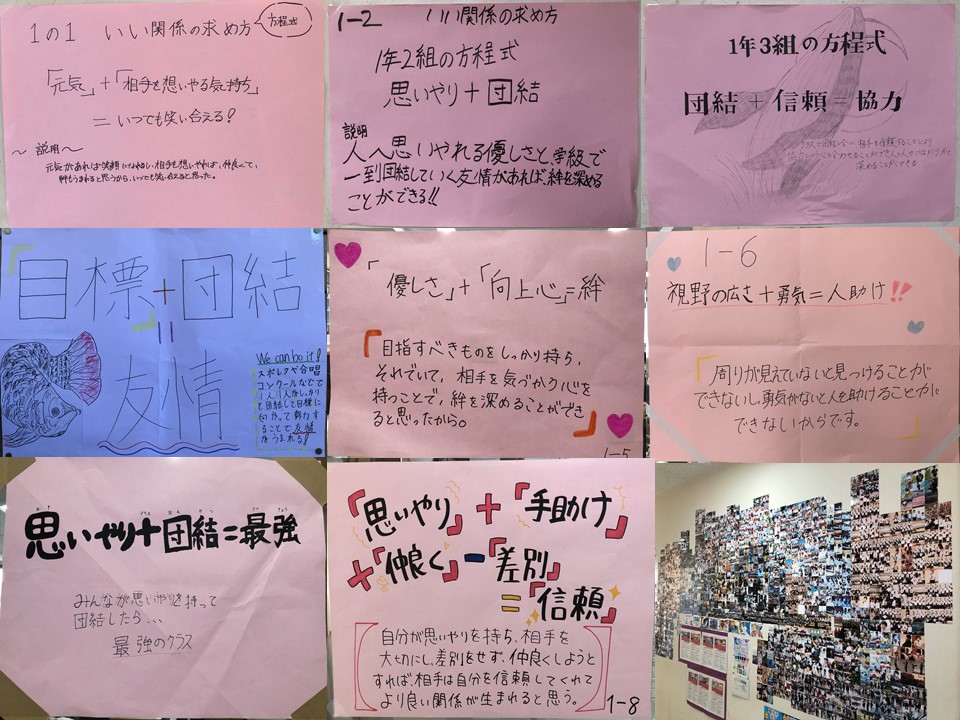 1の1 いい関係の求め方
方程式
「元気」+「相手を想いやる気持ち」
=いつでも笑い合える!
~ 説明 ~
元気があれば笑顔になれるし、相手を想いやれば、仲良くて、
絆もうまれると思うから、いつでも笑い合えると思った。
1-2 いい関係の求め方
1年2組の方程式
思いやり+団結
説明
人へ思いやれる優しさと、学級で
一到団結していく友情があれば、絆を深める
ことができる!!
1年3組の方程式
団結+信頼=協力
深めることができる。
「目標+団結」
=
友情
We can be it!
スポレクや合唱
コンクールなどで
1人1人がしっかり
と団結して目標に
向かって努力す
ることで友情
がうまれる!
「優しさ」+「向上心」=絆
「目指すべきものをしっかり持ち、
それでいて、相手を気づかう心を
持つことで、絆を深めることができ
ると思ったから。」
1-5
1-6
視野の広さ+勇気=人助け!!
「周りが見えていないと見つけることが
できないし、勇気がないと人を助けることが
できないからです。」
思いやり+団結=最強
みんなが思いやりを持って
団結したら...
最強のクラス
「思いやり」+「手助け」
+「仲良く」-「差別」
=「信頼」
自分が思いやりを持ち、相手を
大切にし、差別をせず、仲良くしようと
すれば、相手は自分を信頼してくれて
より良い関係が生まれると思う。
1-8